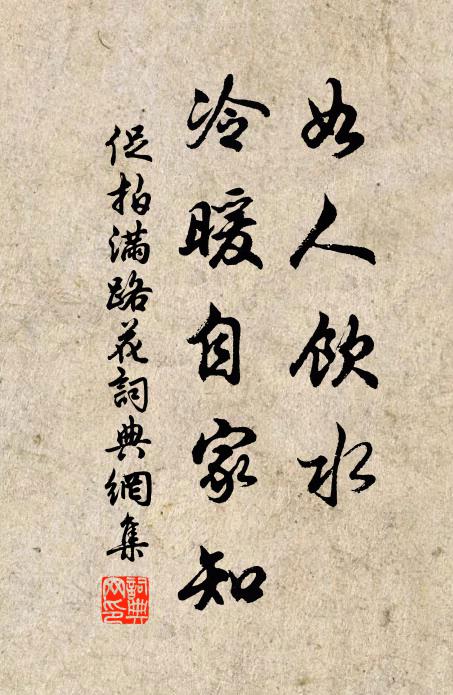 如人飲水
冷暖自家知
促拍満路花詞典網集
詞典
网印